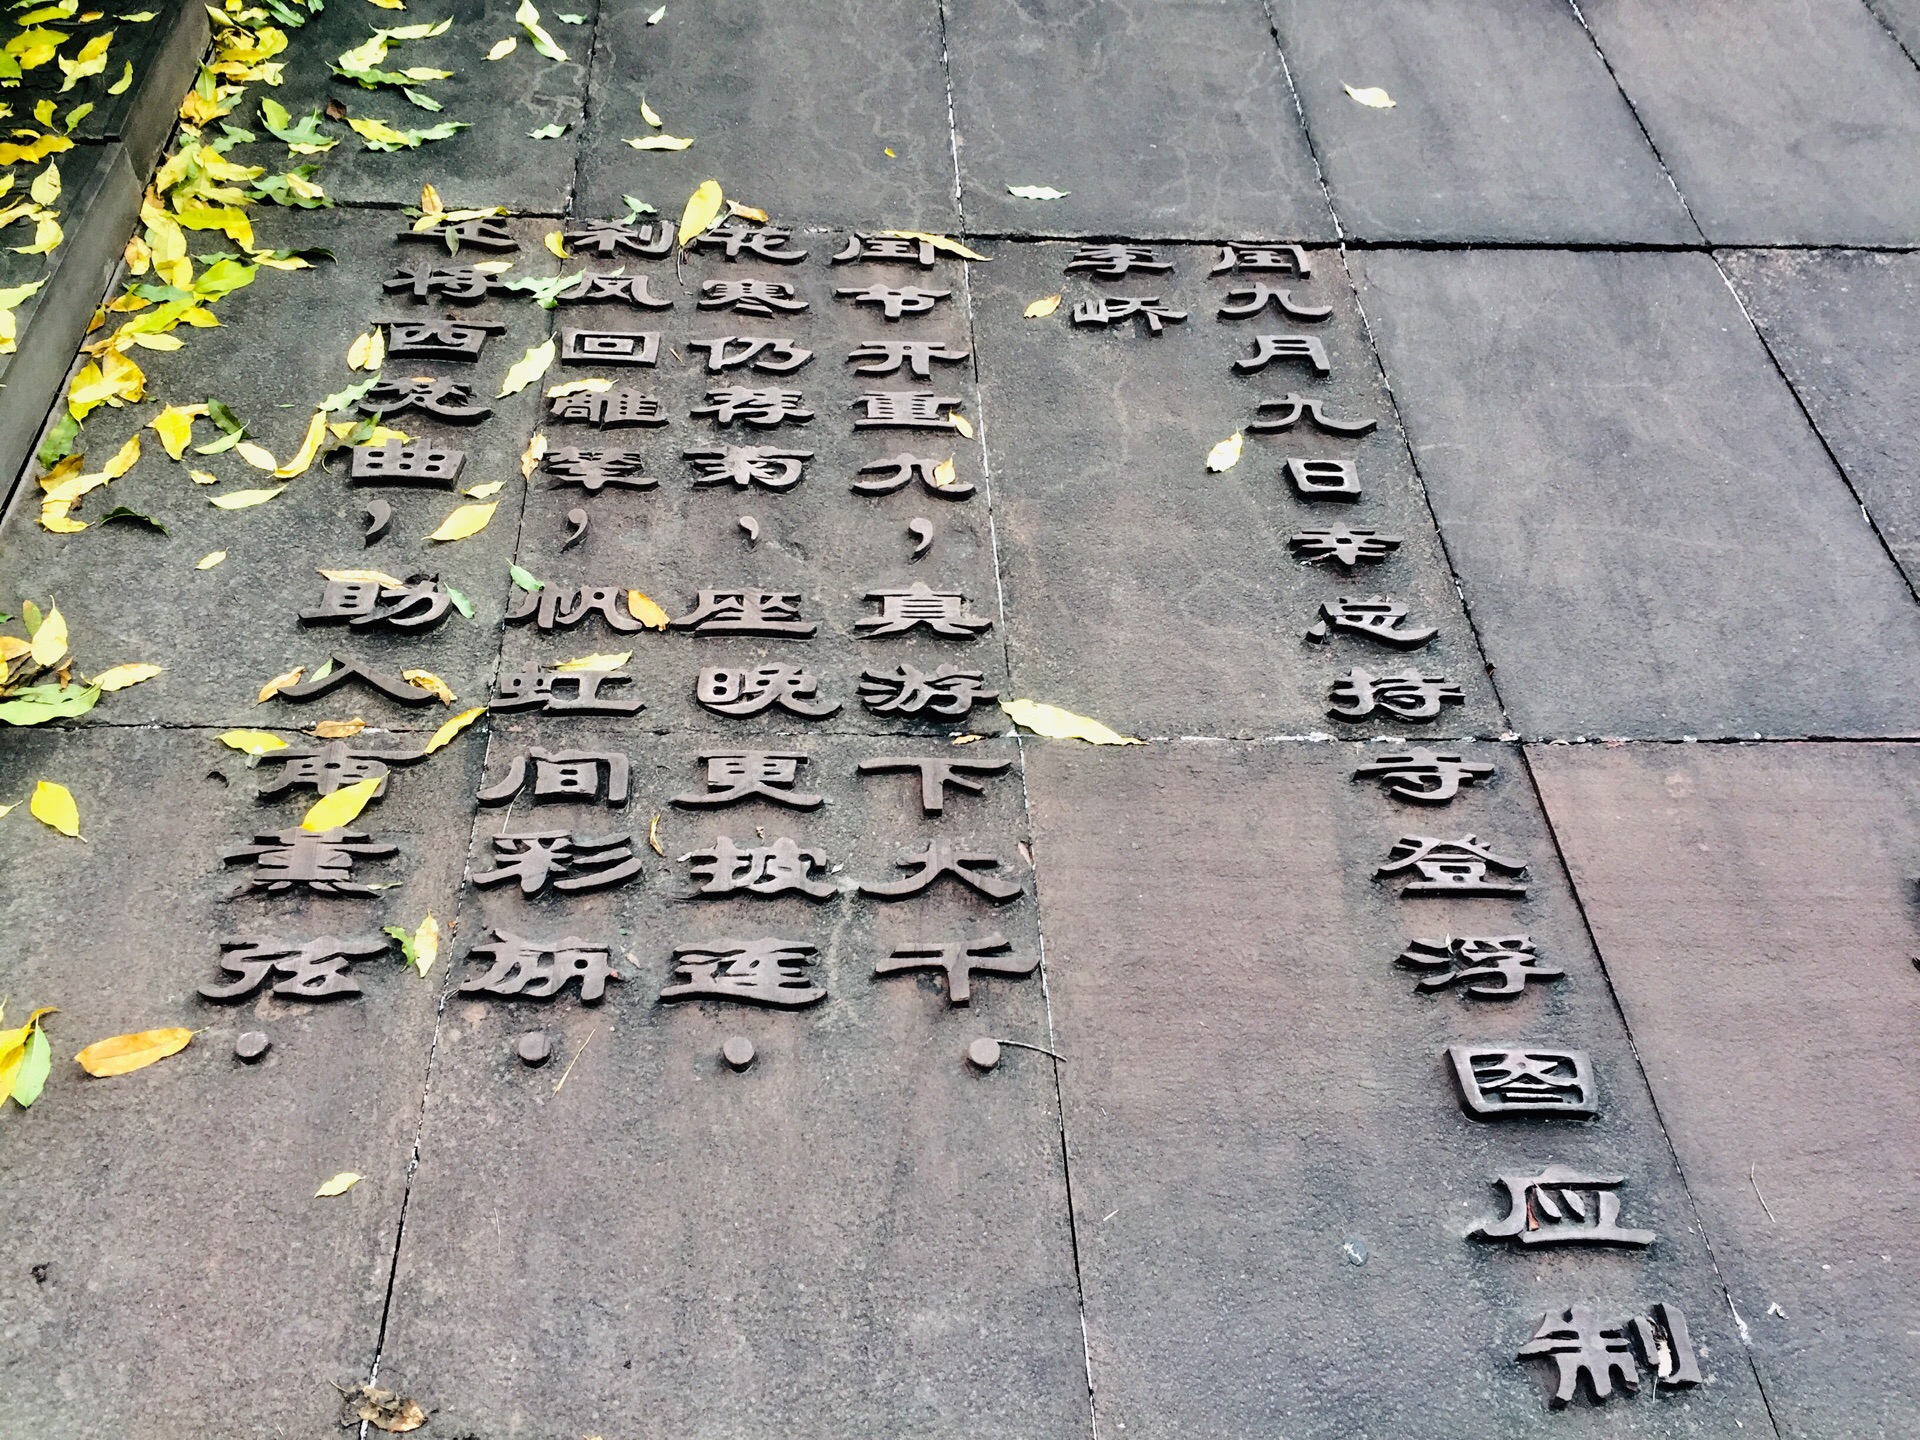 闰九月九日幸总持寺登浮图应制
李峤
闰节开重九，真游下大千。
花寒仍荐菊，座晚更披莲。
刹凤回雕辇，帆虹间彩旃。
还将西梵曲，助入南薰弦。